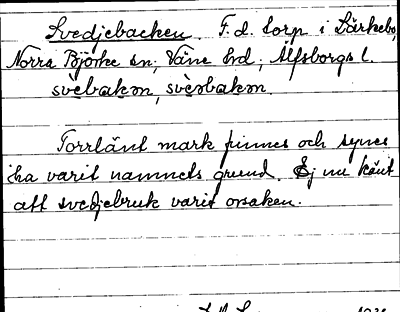 Svedjebacken. F.d. torp i Lärkebo,
Norra Björke sn; Väne hd; Älfsborgs l.
svèbakɘn, svèabakɘn.
Torrlänt mark finnes och synes
ha varit namnets grund. Ej nu känt
att svedjebruk varit orsaken.